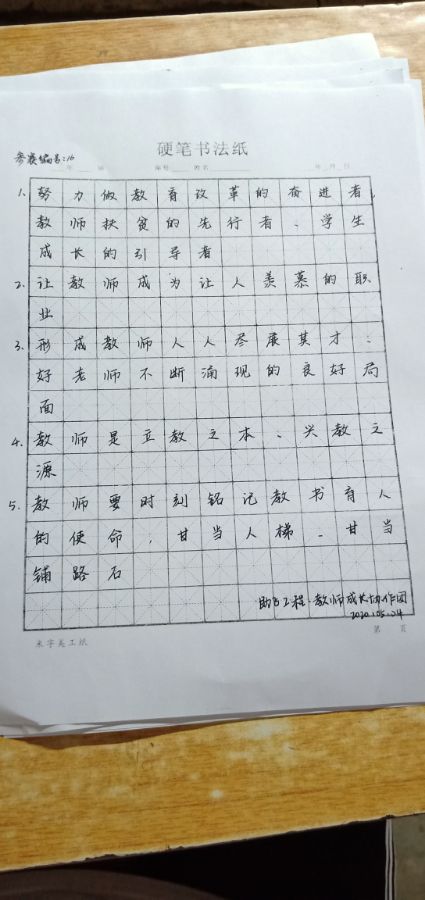 硬笔书法纸
参赛编号:16
年 班 编号 姓名 年 月 日
1. 努力做教育改革的奋进者,
教师扶贫的先行者、学生
成长的引导者
2. 让教师成为让人羡慕的职
业
3. 形成教师人人尽展其才、
好老师不断涌现的良好局
面
4. 教师是立教之本、兴教之
源
5. 教师要时刻铭记教书育人
的使命,甘当人梯、甘当
铺路石
工程·教师成长协作团
2020.05.04
米字美工纸
第 页